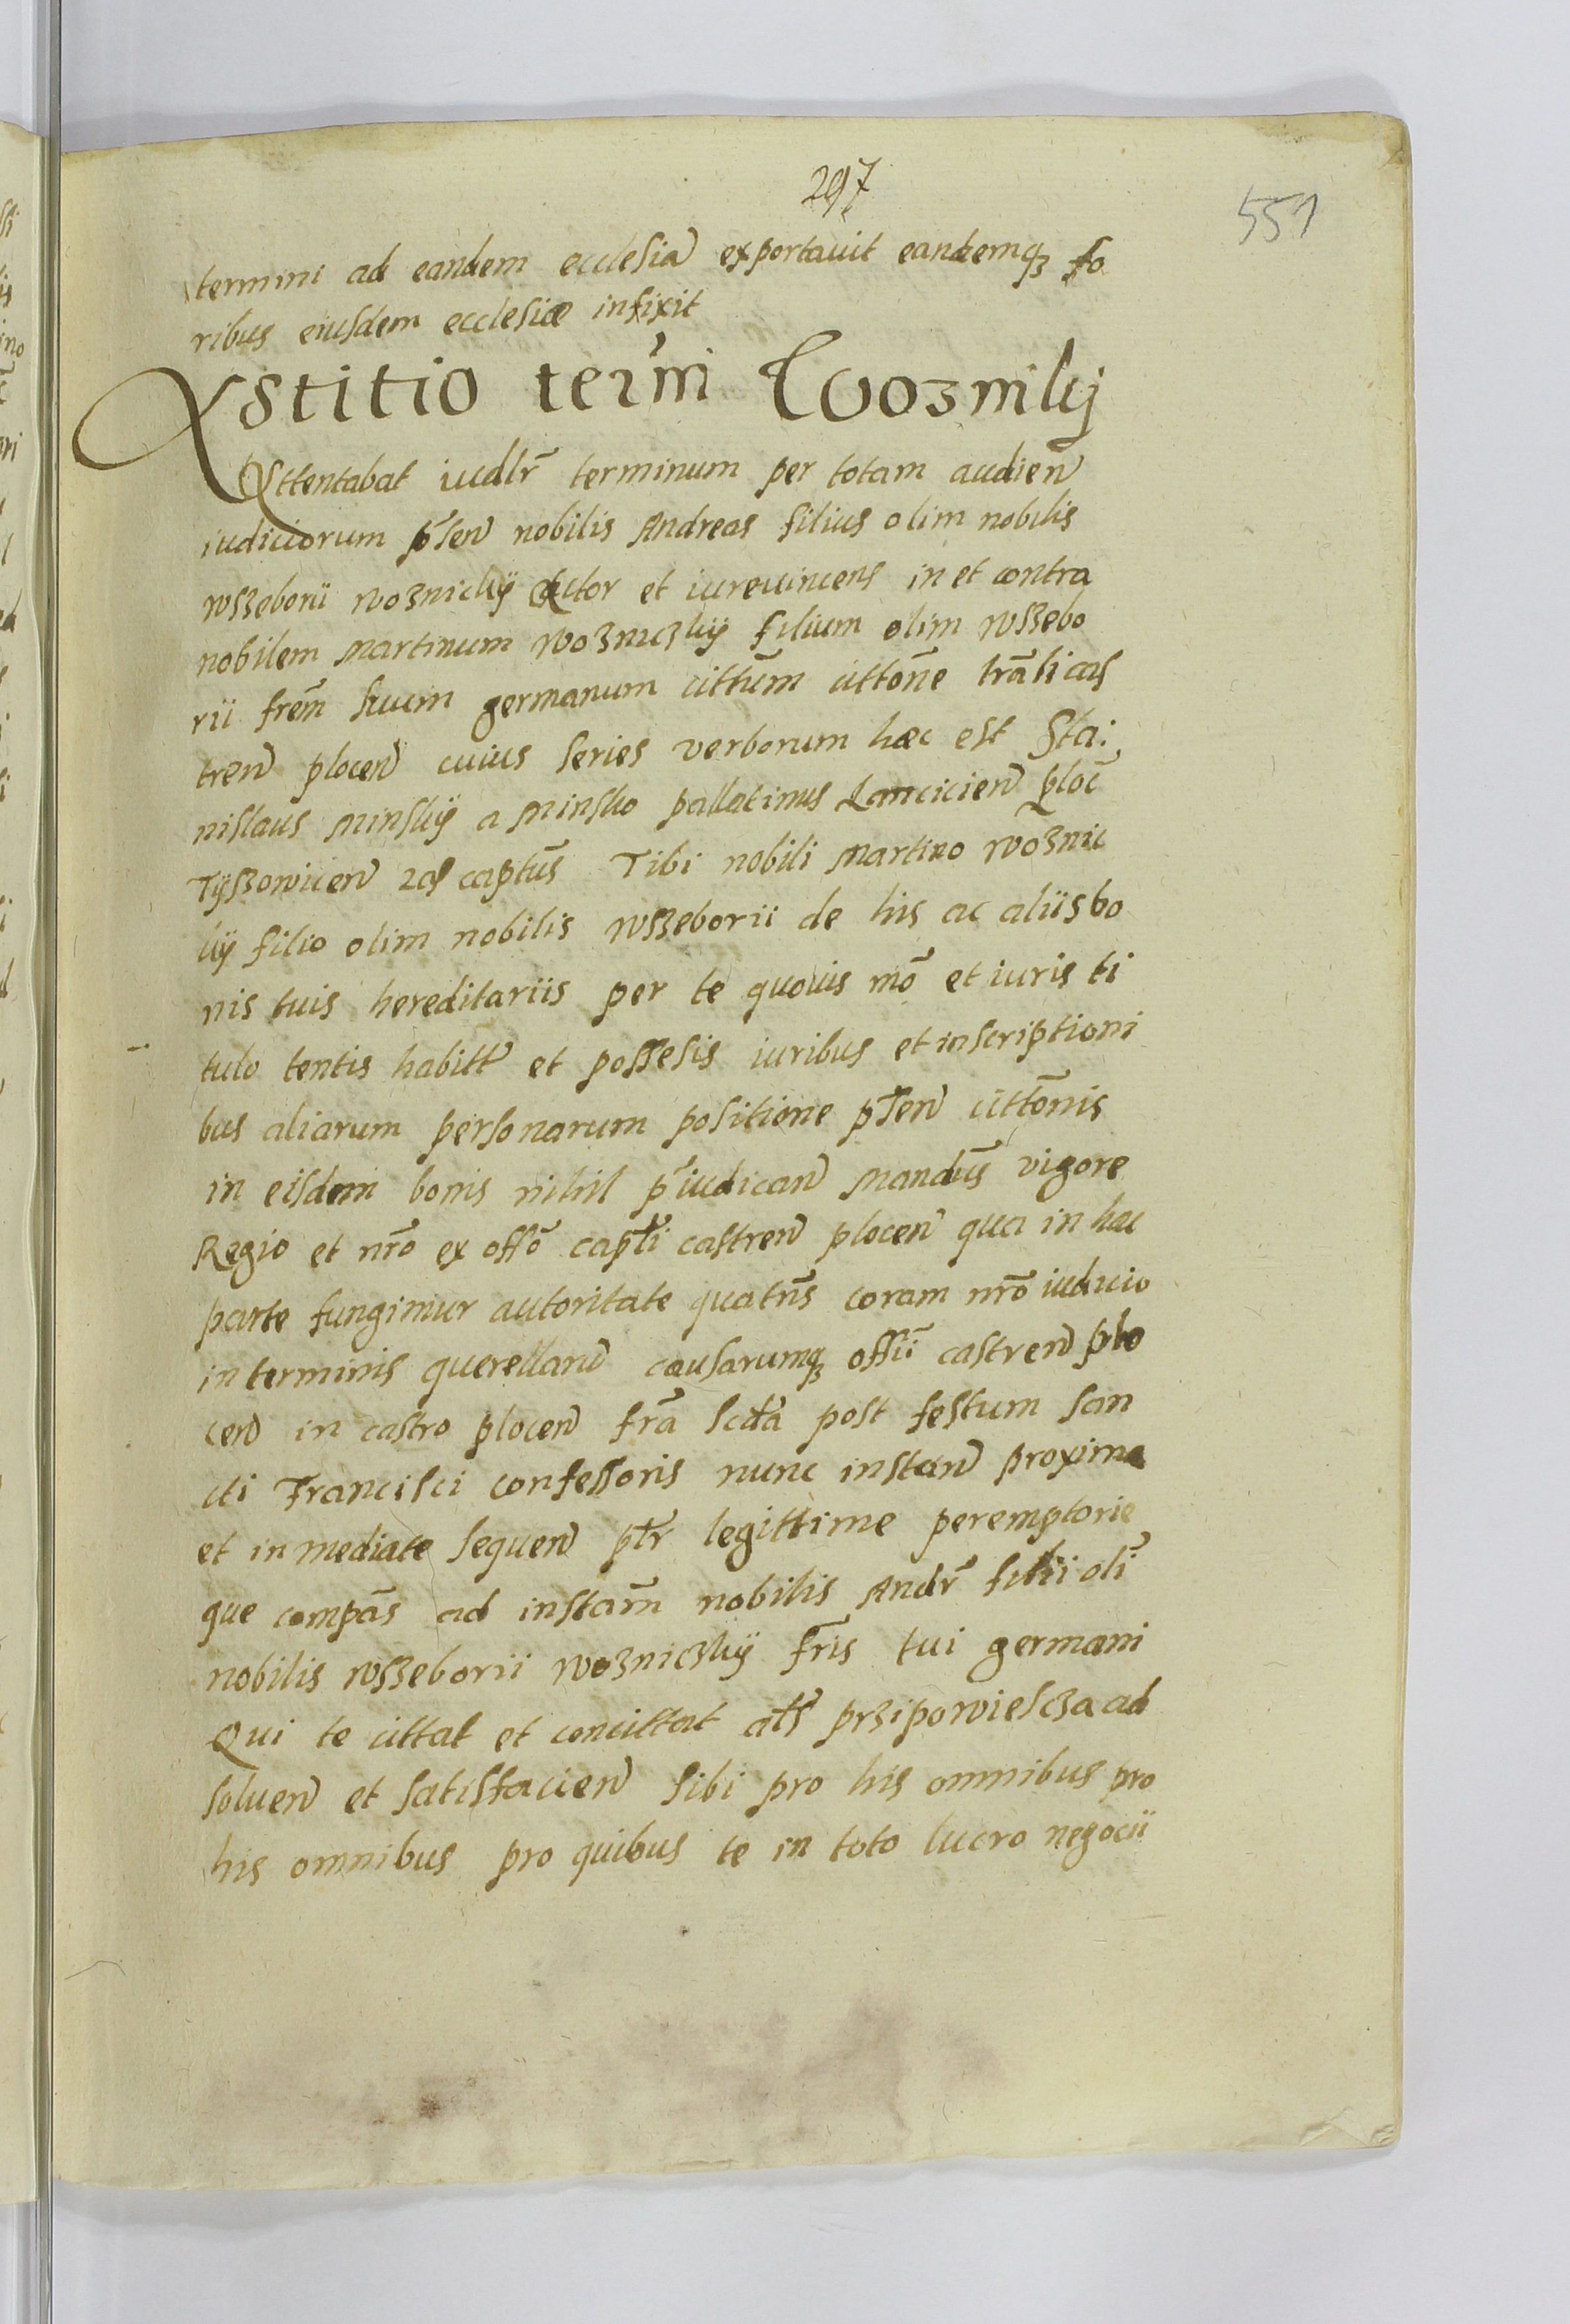 297
551
termini ad eandem ecclesiā exportavit eandemqꝫ fo
ribus eiusdem ecclesiæ infixit
Astitio term̄i Woznikÿ
Attentabat iudlr̄ terminum per totam audien̄
iudiciorum p̄sen̄ nobilis Andreas filius olim nobilis
wszeborii woznickÿ actor et iurevincens in et contra
nobilem Martinum Wozniczkÿ filium olim Wszebo
rii frēm suum germanum cittūm cittōne trāli cas
tren̄ plocen̄ cuius series verborum hæc est Sta:
nislaus Minskÿ a Minsko pallatinus Lancicien̄ ploc̄
Tÿszowicen̄ zc̄ captūs Tibi nobili Martino Woznic
kÿ filio olim nobilis wszeborii de his ac aliis bo
nis tuis hereditariis per te quovis mō et iuris ti
tulo tentis habitt̄ et possesis iuribus et inscriptioni
bus aliarum personarum positione p̄sen̄ cittōnis
in eisdem bonis nihil p̄iudican̄ Mandūs vigore
Regio et nrō ex offō capt̄i castren̄ plocen̄ qua in hac
parte fungimur autoritate quatn̄s coram nrō iudicio
in terminis querellarū causarumqꝫ offīi castren̄ plo
cen̄ in castro plocen̄ frā scdā post festum san
cti Francisci confessoris nunc instan̄ proxime
et in mediate sequen̄ ptr̄ legittime peremptorie
que compās ad instām nobilis Andr̄ filii oli̅
nobilis wszeborii wozniczkÿ fr̄is tui germani
Qui te cittat et concittat al̄s przipowiescza ad
solven̄ et satisfacien̄ sibi pro his omnibus pro
his omnibus pro quibus te in toto lucro negocii